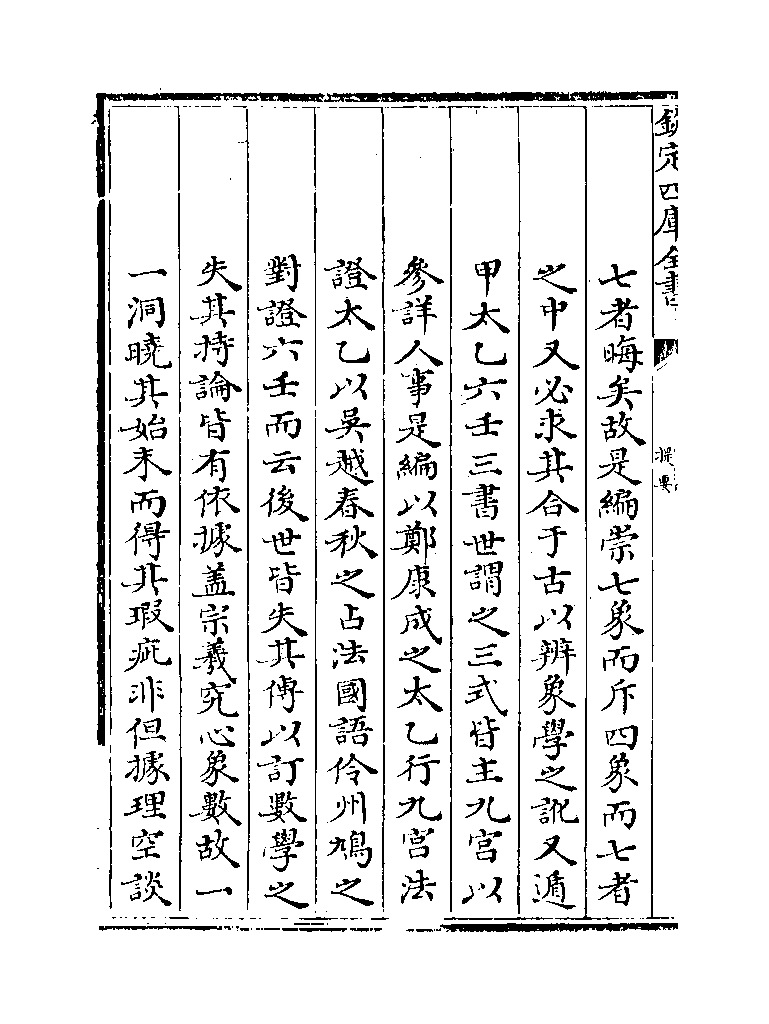 欽定四庫全書
提要
七者晦矣故是編崇七象而斥四象而七者
之中又必求其合于古以辨象學之訛又遁
甲太乙六壬三書世謂之三式皆主九宮以
參詳人事是編以鄭康成之太乙行九宮法
證太乙以吳越春秋之占法國語伶州鳩之
對證六壬而云後世皆失其傳以訂數學之
失其持論皆有依據葢宗羲究心象數故一
一洞曉其始末而得其瑕疵非但據理空談